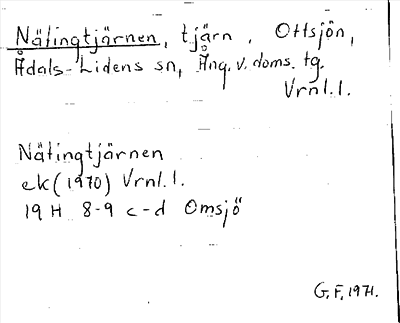 Nätingtjärnen, tjärn, Ottsjön,
Ådals-Lidens sn, Ång. v. doms. tg.
Vrnl. l.
Nätingtjärnen
ek (1970) Vrnl. l.
19 H 8-9 c-d Omsjö
G. F. 1971.